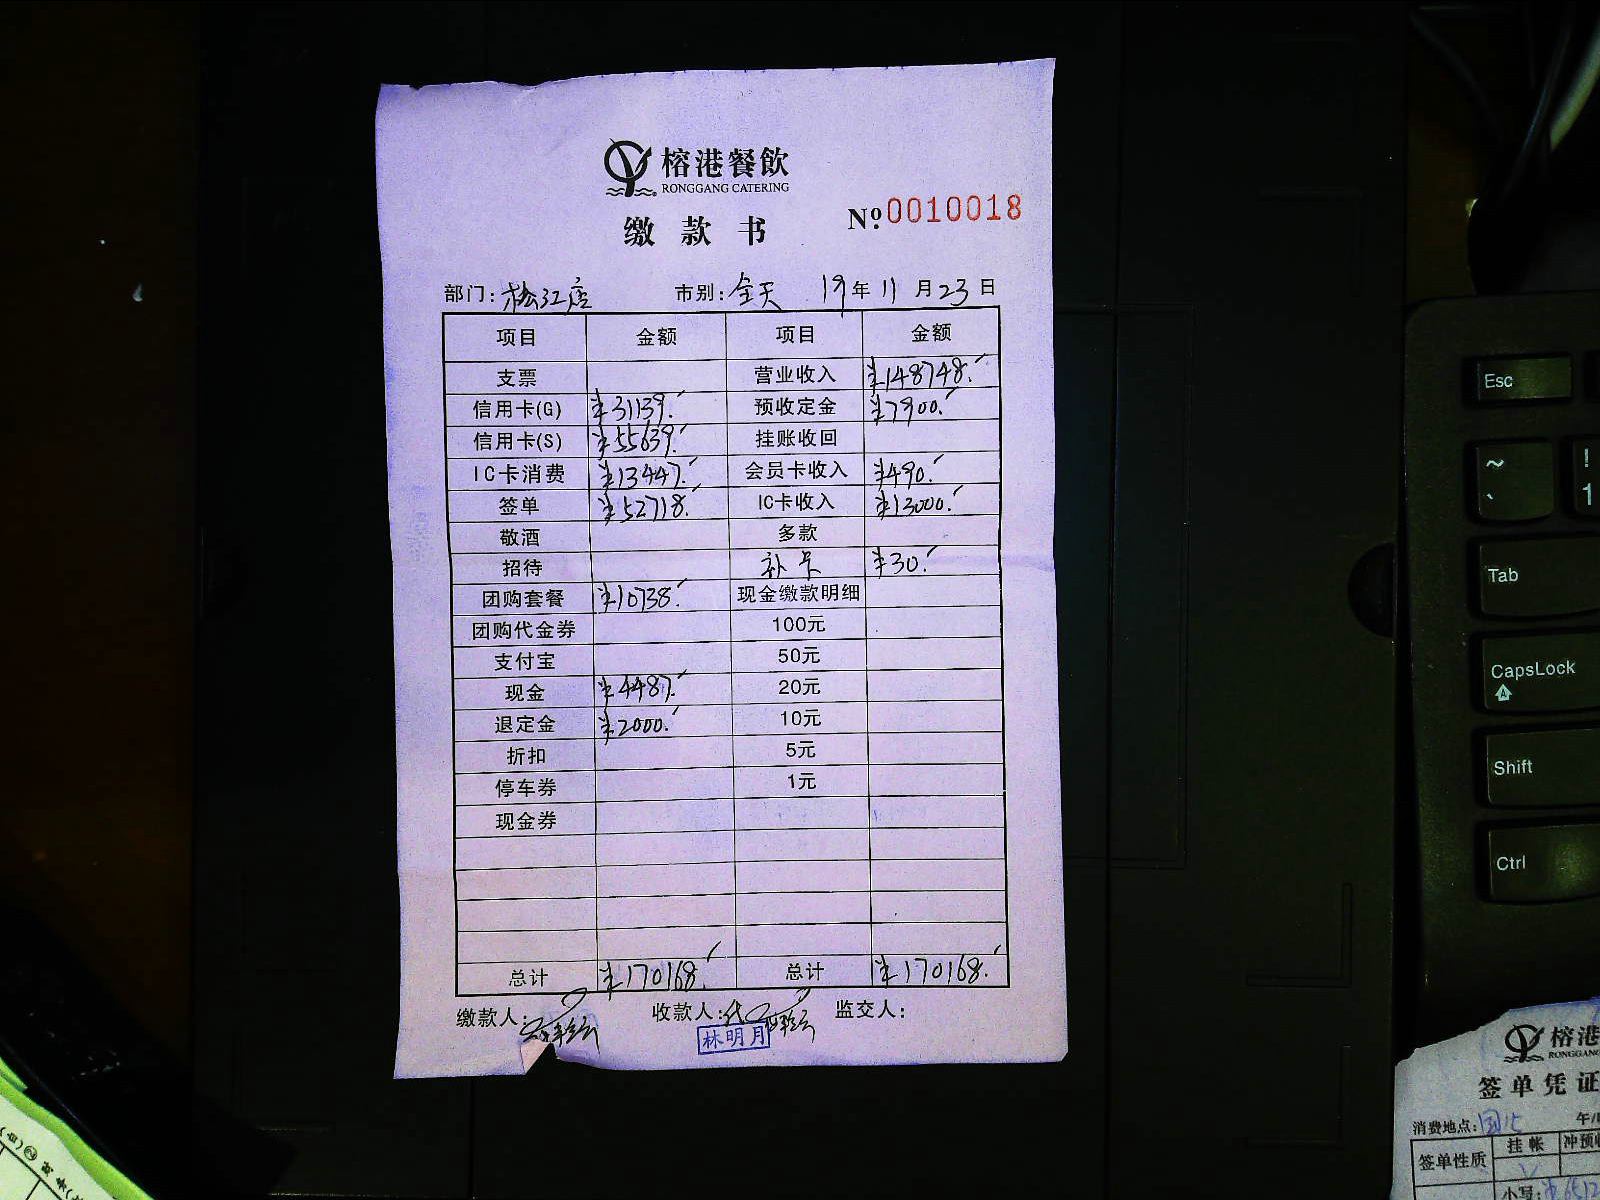 榕港餐飲
RONGGANG CATERING
缴款书 Nº 0010018
部门: 松江店 市别: 全天 19年11月23日
项目 金额 项目 金额
支票 营业收入 ¥148748.
信用卡(G) ¥31139. 预收定金 ¥7900.
信用卡(S) ¥55639. 挂账收回
IC卡消费 ¥13447. 会员卡收入 ¥490.
签单 ¥52718. IC卡收入 ¥13000.
敬酒 多款
招待 补卡 ¥30.
团购套餐 ¥10738. 现金缴款明细
团购代金券 100元
支付宝 50元
现金 ¥4487. 20元
退定金 ¥2000. 10元
折扣 5元
停车券 1元
现金券
总计 ¥170168. 总计 ¥170168.
缴款人: 收款人: 代 监交人:
林明月
Esc
~ `
! 1
Tab
CapsLock
A
Shift
Ctrl
榕港
RONGGANG
签单凭证
消费地点:
签单性质 挂帐 冲预收
小写: